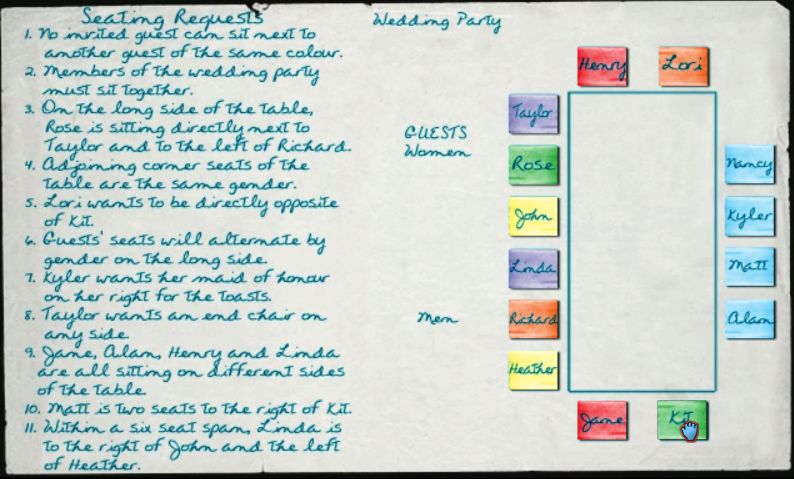 Seating Requests
1. No invited guest can sit next to
another guest of the same colour.
2. Members of the wedding party
must sit together.
3. On the long side of the table,
Rose is sitting directly next to
Taylor and to the left of Richard.
4. Adjoining corner seats of the
table are the same gender.
5. Lori wants to be directly opposite
of Kit.
6. Guests' seats will alternate by
gender on the long side.
7. Kyler wants her maid of honour
on her right for the toasts.
8. Taylor wants an end chair on
any side.
9. Jane, Alan, Henry and Linda
are all sitting on different sides
of the table.
10. Matt is two seats to the right of Kit.
11. Within a six seat span, Linda is
to the right of John and the left
of Heather.
Wedding Party
GUESTS
Women
Men
Henry
Lori
Taylor
Rose
John
Linda
Richard
Heather
Nancy
Kyler
Matt
Alan
Jane
Kit